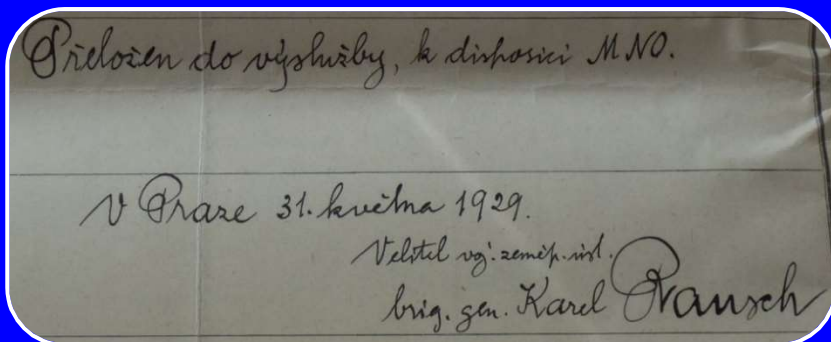 Přeložen do výslužby, k disposici MNO.
V Praze 31. května 1929.
Velitel voj. zeměp. úst.
brig. gen. Karel Rausch